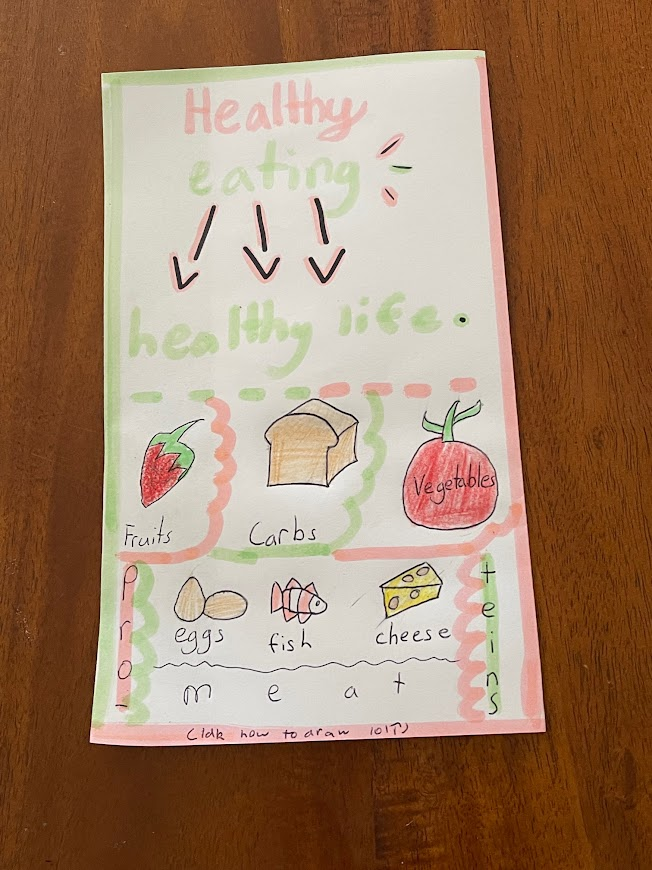 Healthy
eating
healthy life.
Fruits
Carbs
Vegetables
Pro-
teins
eggs
fish
cheese
meat
how to draw